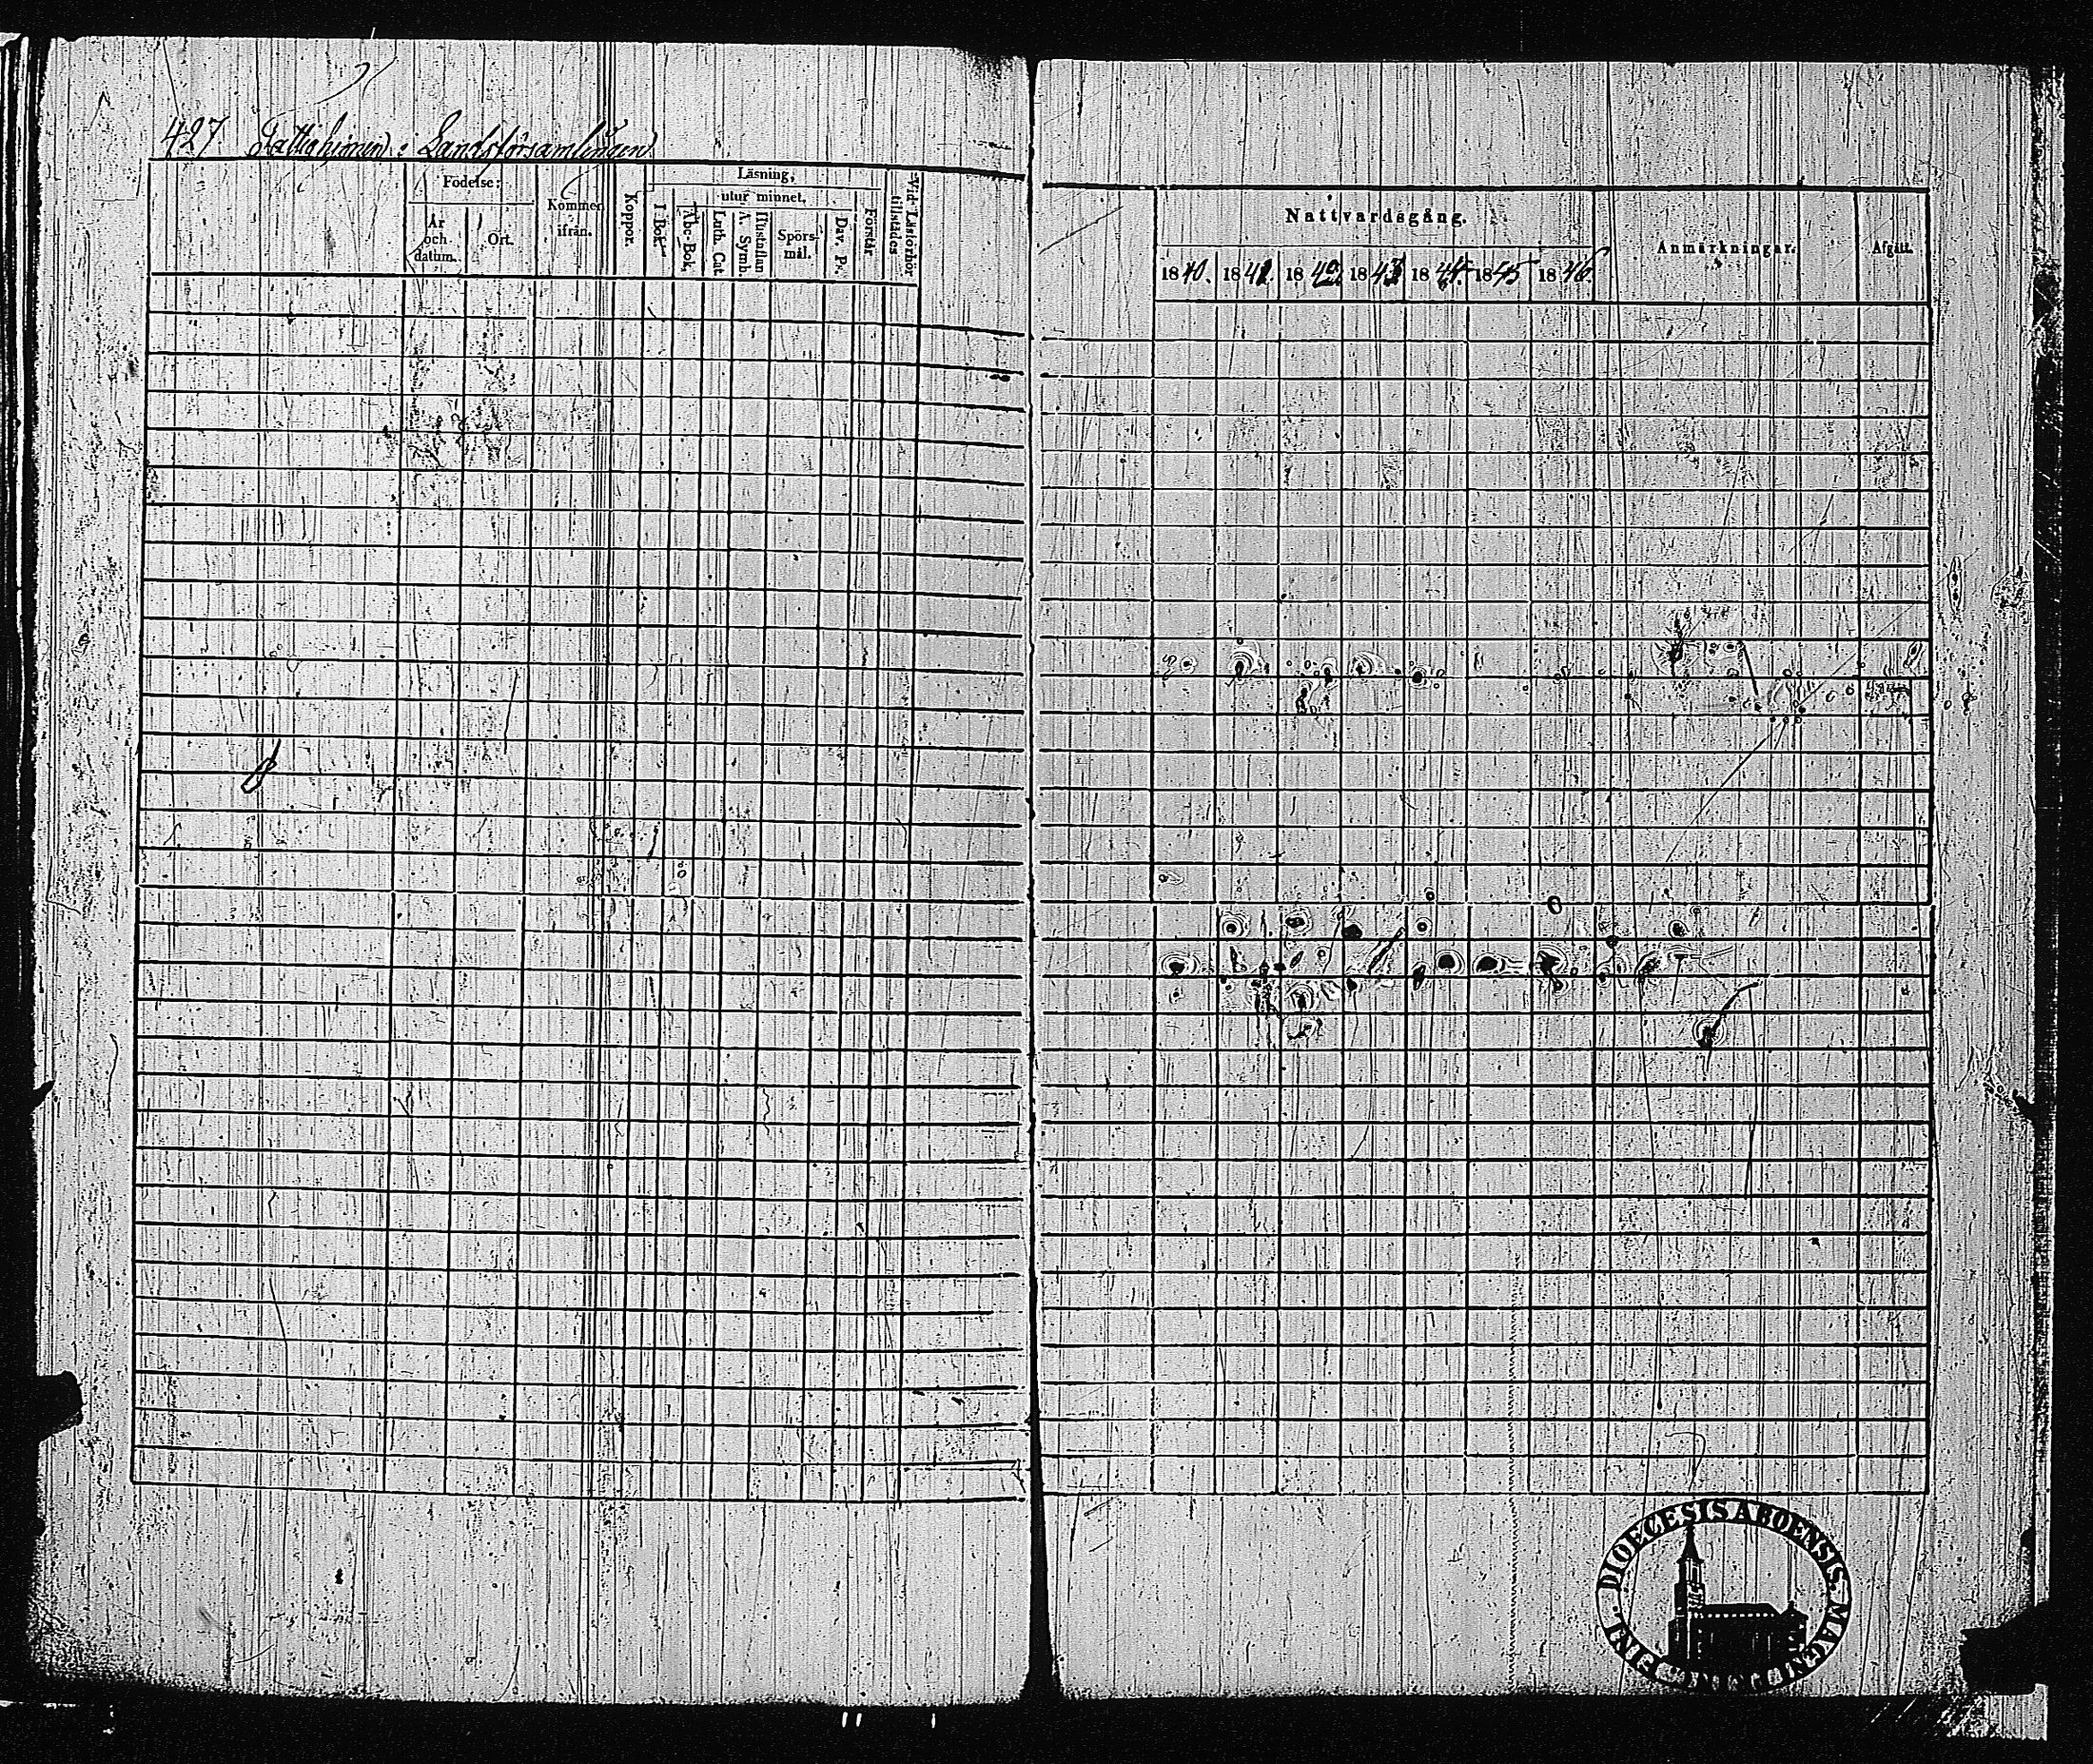 427 Fattighjonen i Landsförsamlingen
Födelse:
År och datum.
Ort.
Kommer ifrån.
Koppor.
Läsning,
utur minnet.
I Bok.
Abc-Bok,
Luth. Cat
Hustaflan
A. Symb.
Spörs-mål.
Dav. Ps.
Förstår
Vid Läsförhör tillstädes
Nattvardsgång.
1840. 1841 1842. 1843 1844. 1845 1846.
Anmärkningar.
Afgått.
DIOECESIS ABOENSIS. MAGNI